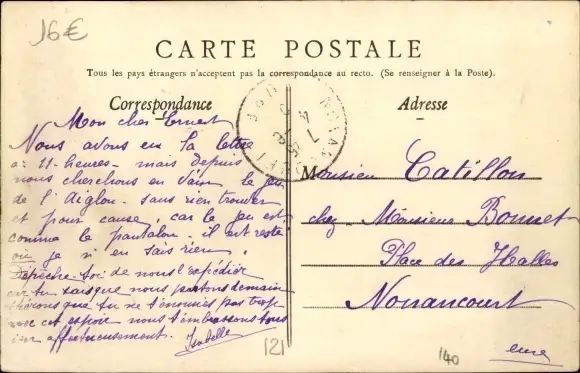 16€
CARTE POSTALE
Tous les pays étrangers n'acceptent pas la correspondance au recto. (Se renseigner à la Poste).
Correspondance
Mon cher Ernest
Nous avons eu ta lettre
à 11 heures - mais depuis
nous cherchons en vain le jeu
de l'Aiglon. sans rien trouver
et pour cause, car le jeu est
comme le pantalon. il est resté
où je n'en sais rien.
Dépêche-toi de nous l'expédier
car tu sais que nous partons demain
que tu ne t'ennuies pas trop
cet espoir nous t'embrassons tous
bien affectueusement.
Isabelle
121
Adresse
Monsieur Catillon
chez Monsieur Bonnet
Place des Halles
Nonancourt
eure
140